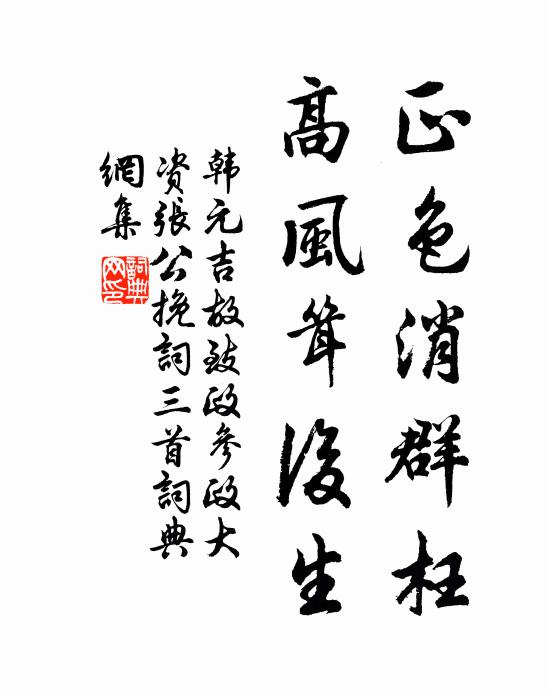 正色消群枉
高風耸後生
韩元吉故致政参政大
资張公挽詞三首詞典
網集
詞典網印